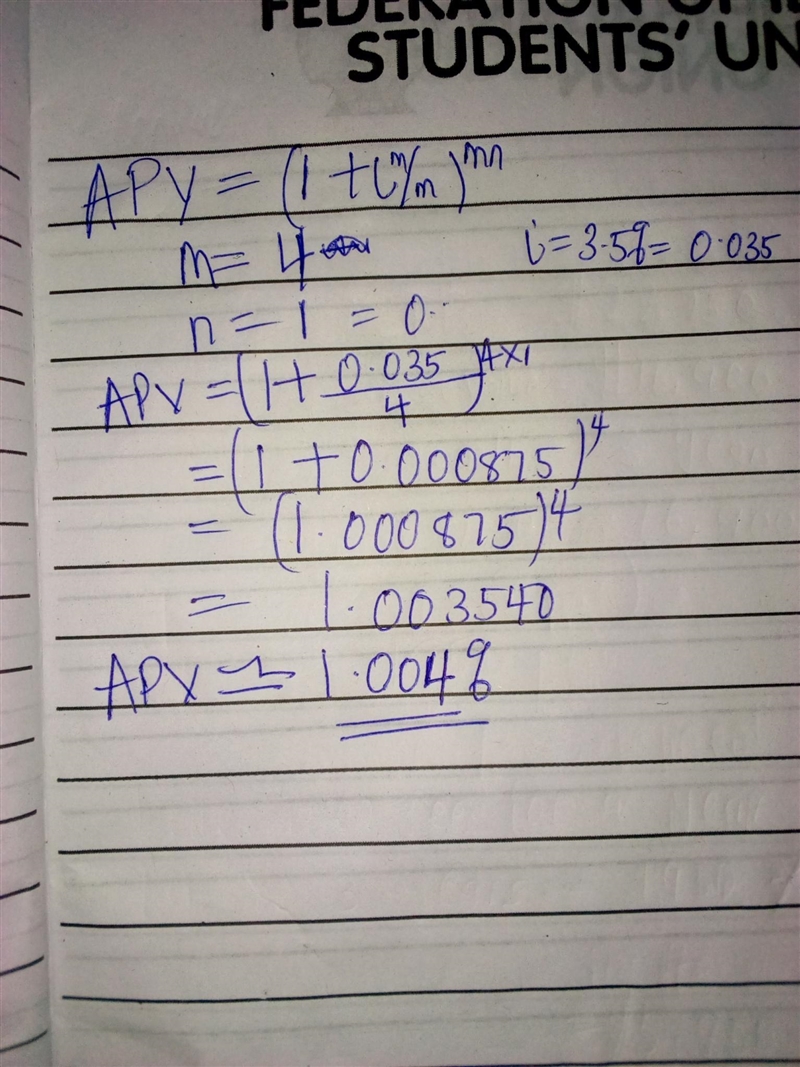 STUDENTS' UN
APY = (1 + i^m/m)^mn
m = 4
i = 3.5% = 0.035
n = 1 = 0.
APY = (1 + 0.035/4)^4×1
= (1 + 0.000875)^4
= (1.000875)^4
= 1.003540
APY ≃ 1.004%